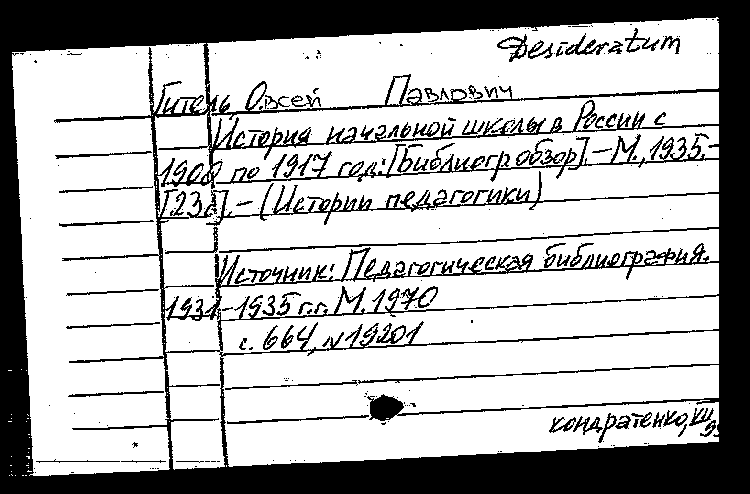 Desideratum
Гитель Овсей Павлович
История начальной школы в России с
1908 по 1917 год: [Библиогр обзор]. - М., 1935. -
[23с]. - (Истории педагогики)
Источник: Педагогическая библиография.
1931-1935 г.г. М. 1970
с. 664, N 19201
кондратенко,